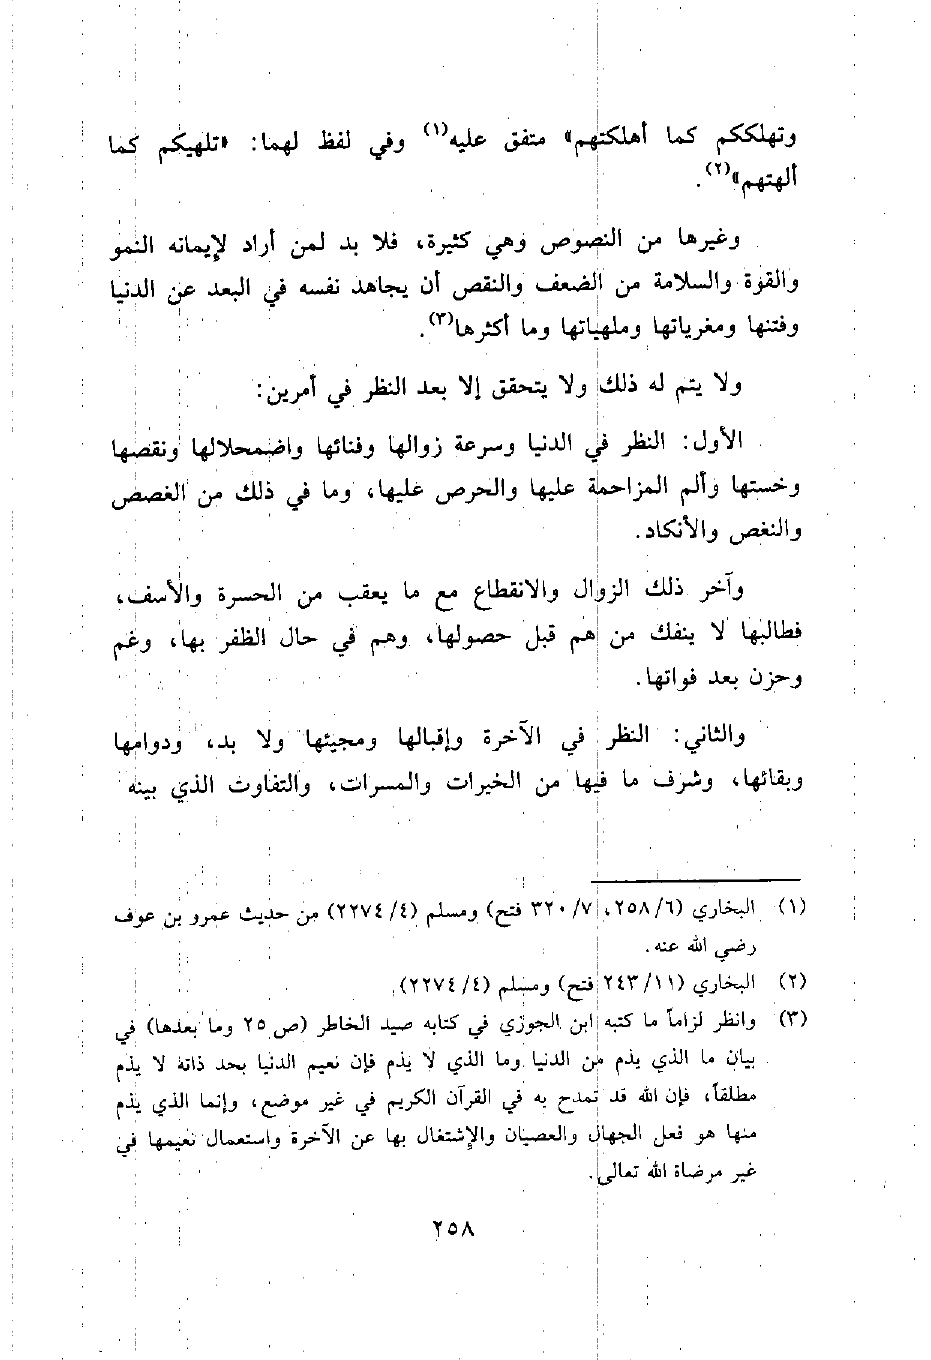 وتهلككم كما أهلكتهم» متفق عليه(١) وفي لفظ لهما: «تلهيكم كما
ألهتهم»(٢).
وغيرها من النصوص وهي كثيرة، فلا بد لمن أراد لإيمانه النمو
والقوة والسلامة من الضعف والنقص أن يجاهد نفسه في البعد عن الدنيا
وفتنها ومغرياتها وملهياتها وما أكثرها(٣).
ولا يتم له ذلك ولا يتحقق إلا بعد النظر في أمرين:
الأول: النظر في الدنيا وسرعة زوالها وفنائها واضمحلالها ونقصها
وخستها وألم المزاحمة عليها والحرص عليها، وما في ذلك من الغصص
والنغص والأنكاد.
وآخر ذلك الزوال والانقطاع مع ما يعقب من الحسرة والأسف،
فطالبها لا ينفك من هم قبل حصولها، وهم في حال الظفر بها، وغم
وحزن بعد فواتها.
والثاني: النظر في الآخرة وإقبالها ومجيئها ولا بد، ودوامها
وبقائها، وشرف ما فيها من الخيرات والمسرات، والتفاوت الذي بينه
(١) البخاري (٢٥٨/٦، ٣٢٠/٧ فتح) ومسلم (٢٢٧٤/٤) من حديث عمرو بن عوف
رضي الله عنه.
(٢) البخاري (٢٤٣/١١ فتح) ومسلم (٢٢٧٤/٤).
(٣) وانظر لزاماً ما كتبه ابن الجوزي في كتابه صيد الخاطر (ص ٢٥ وما بعدها) في
بيان ما الذي يذم من الدنيا وما الذي لا يذم فإن نعيم الدنيا بحد ذاته لا يذم
مطلقاً، فإن الله قد تمدح به في القرآن الكريم في غير موضع، وإنما الذي يذم
منها هو فعل الجهال والعصيان والإشتغال بها عن الآخرة واستعمال نعيمها في
غير مرضاة الله تعالى.
٢٥٨